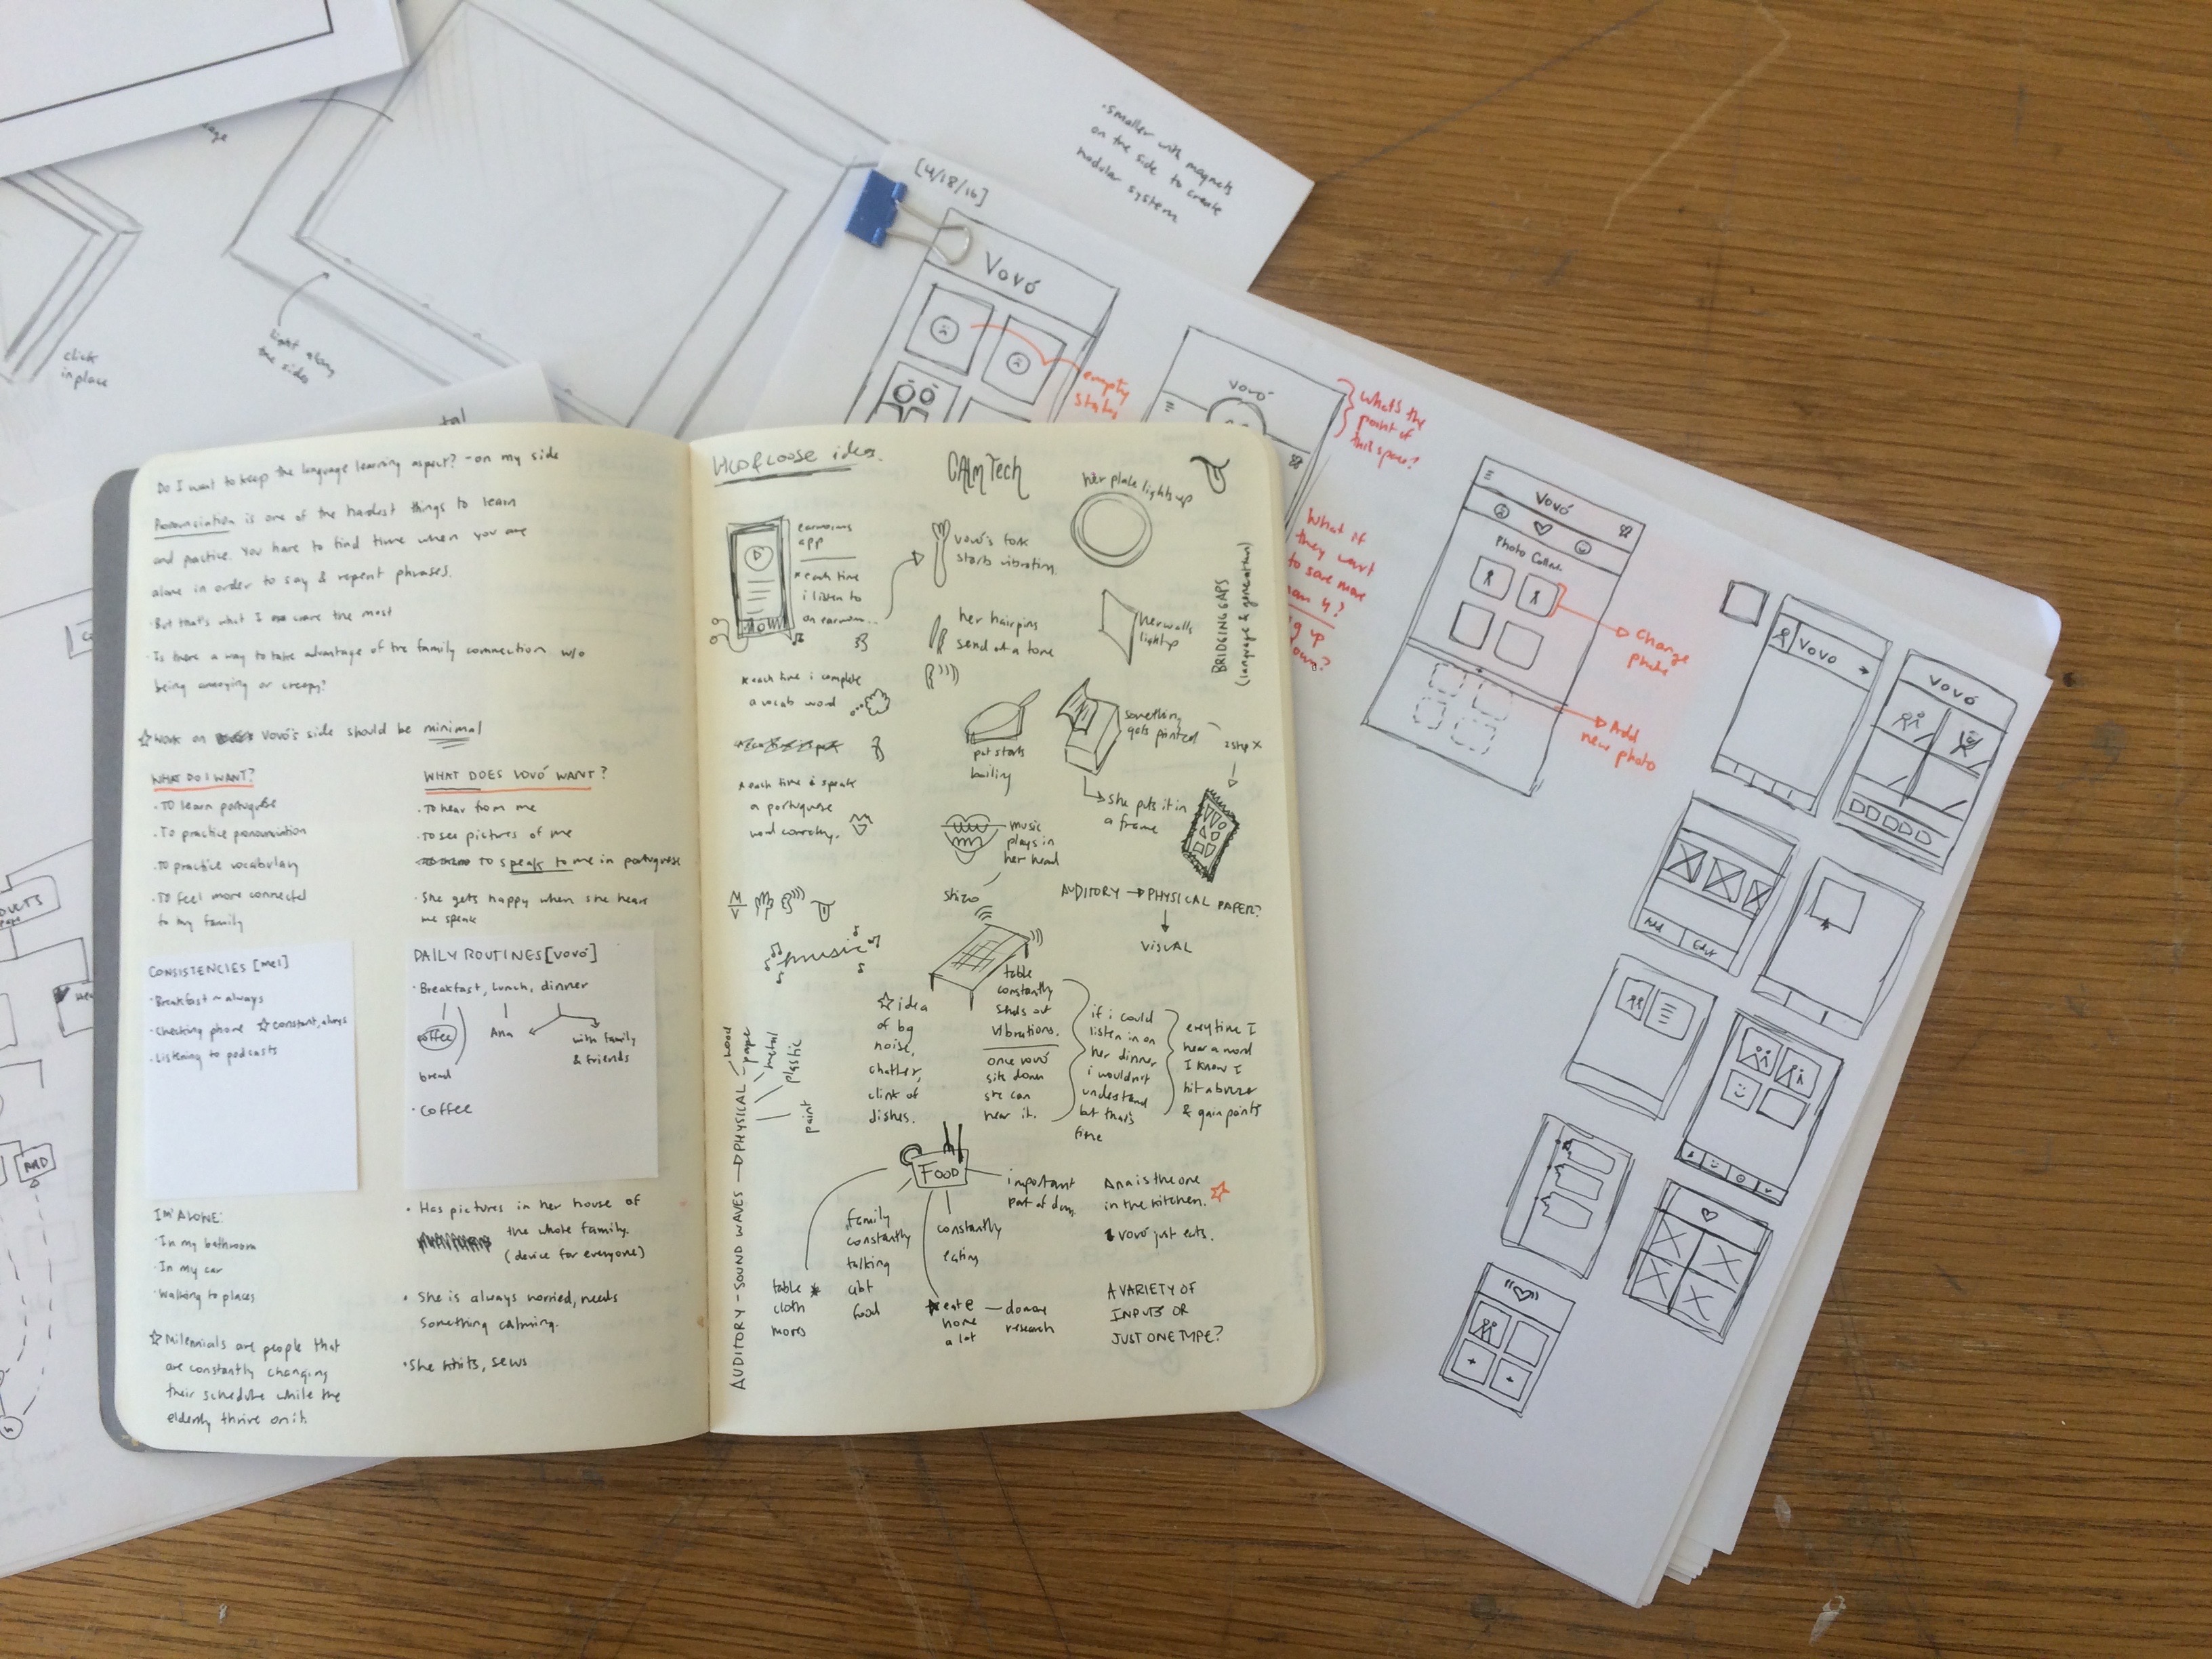 ·smaller with magnets
on the side to create
modular system
click
in place
light along
the sides
[4/18/16]
Vovó
empty
states
vovó
what's the
point of
this space?
What if
they want
to save more
than 4?
Vovó
Photo
change
photo
Add
new photo
Vovo
VOVÓ
Add
Edit
Do I want to keep the language learning aspect? - on my side
Pronunciation is one of the hardest things to learn
and practice. You have to find time when you are
alone in order to say & repeat phrases.
·But that's what I the most
·Is there a way to take advantage of the family connection w/o
being annoying or creepy?
☆Work on vovó's side should be minimal
WHAT DO I WANT?
·To learn portuguese
·To practice pronunciation
·To practice vocabulary
·To feel more connected
to my family
WHAT DOES VOVÓ WANT?
·To hear from me
·To see pictures of me
To speak to me in portuguese
·She gets happy when she hears
me speak
CONSISTENCIES [me]
·Breakfast ~ always
·checking phone ☆constant, always
·Listening to podcasts
DAILY ROUTINES [VOVÓ]
·Breakfast, lunch, dinner
coffee
Ana
with family
& friends
bread
·coffee
I'M ALONE:
·In my bathroom
·In my car
·Walking to places
☆Milennials are people that
are constantly changing
their schedule while the
elderly thrive on it.
·Has pictures in her house of
the whole family.
(device for everyone)
·She is always worried, needs
something calming.
·She knits, sews
loose ideas.
CAlmTech
her plate lights up
app
*each time
i listen to
on
vovó's fork
starts vibrating.
her hairpins
send out a tone
her walls
light up
BRIDGING GAPS
(language & generation)
*each time i complete
a vocab word
*each time i speak
a portuguese
word correctly.
pot starts
boiling
something
gets printed
2 step x
she puts it in
a frame
music
plays in
her head
AUDITORY → PHYSICAL PAPER?
VISUAL
music
table
constantly
sends out
vibrations.
once vovó
sits down
she can
hear it.
☆idea
of bg
noise,
chatter,
clink of
dishes.
if i could
listen in on
her dinner
i wouldn't
understand
but that's
fine
everytime I
hear a word
I know I
hit a buzzer
& gain points
AUDITORY - SOUND WAVES → PHYSICAL
wood
paper
metal
plastic
paint
FOOD
important
part of day
Ana is the one
in the kitchen.
vovó just eats.
family
constantly
talking
abt
food
constantly
eating
table *
cloth
moves
home
a lot
research
A VARIETY OF
INPUTS OR
JUST ONE TYPE?